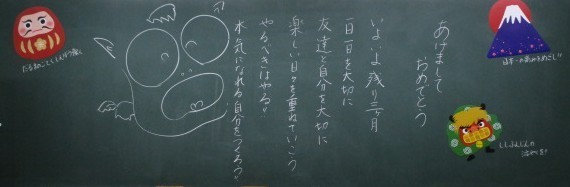 日本一の高みをめざし!!
あけまして
おめでとう
いよいよ残り三ヶ月
一日一日を大切に
友達と自分を大切に
楽しい日々を重ねていこう
やるべきはやる!!
本気になれる自分をつくろう!!
ししふんじんの
だるまのごとくしんぼう強く